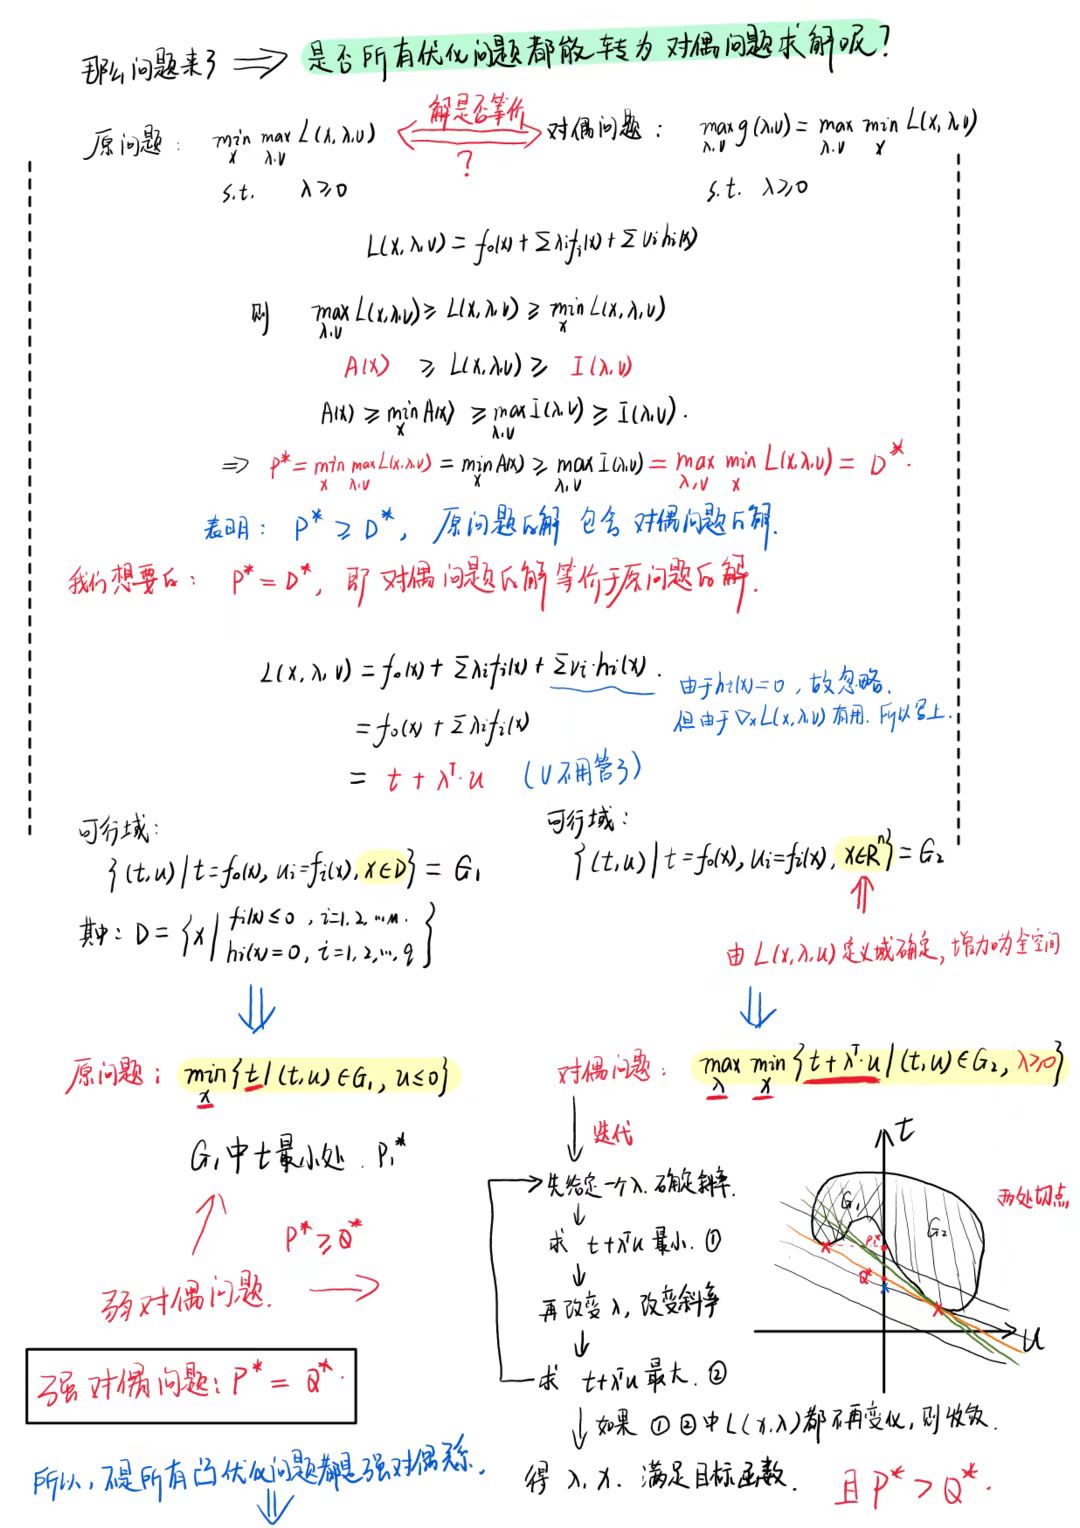 那么问题来了 ⇒ 是否所有优化问题都能转为对偶问题求解呢?
解是否等价
?
原问题: min_x max_{λ,ν} L(x,λ,ν)
s.t. λ≥0
对偶问题: max_{λ,ν} g(λ,ν) = max_{λ,ν} min_x L(x,λ,ν)
s.t. λ≥0
L(x,λ,ν) = f₀(x) + Σλᵢfᵢ(x) + Σνᵢhᵢ(x)
则 max_{λ,ν} L(x,λ,ν) ≥ L(x,λ,ν) ≥ min_x L(x,λ,ν)
A(x) ≥ L(x,λ,ν) ≥ I(λ,ν)
A(x) ≥ min_x A(x) ≥ max_{λ,ν} I(λ,ν) ≥ I(λ,ν).
⇒ P* = min_x max_{λ,ν} L(x,λ,ν) = min_x A(x) ≥ max_{λ,ν} I(λ,ν) = max_{λ,ν} min_x L(x,λ,ν) = D*.
表明: P* ≥ D*, 原问题的解 包含 对偶问题的解.
我们想要的: P* = D*, 即 对偶问题的解等价于原问题的解.
L(x,λ,ν) = f₀(x) + Σλᵢfᵢ(x) + Σνᵢ·hᵢ(x).
由于hᵢ(x)=0, 故忽略.
但由于∇ₓL(x,λ,ν)有用. 所以写上.
= f₀(x) + Σλᵢfᵢ(x)
= t + λᵀ·u (ν不用管了)
可行域:
{(t,u) | t=f₀(x), uᵢ=fᵢ(x), x∈D} = G₁
其中: D = {x | fᵢ(x)≤0, i=1,2,…m. hᵢ(x)=0, i=1,2,…,q}
可行域:
{(t,u) | t=f₀(x), uᵢ=fᵢ(x), x∈Rⁿ} = G₂
由L(x,λ,u)定义域确定, 增加为全空间
原问题: min_x {t | (t,u)∈G₁, u≤0}
G₁中t最小处. P₁*
P* ≥ Q*
弱对偶问题.
强对偶问题: P* = Q*.
所以, 不是所有凸优化问题都是强对偶关系.
对偶问题: max_λ min_x {t+λᵀ·u | (t,u)∈G₂, λ≥0}
迭代
先给定一个λ. 确定斜率.
求 t+λᵀu 最小. ①
再改变λ, 改变斜率
求 t+λᵀu 最大. ②
如果 ①②中L(x,λ)都不再变化, 则收敛.
得 λ, x. 满足目标函数. 且P* > Q*.
t
两处切点
G₁
G₂
P₁*
Q*
u